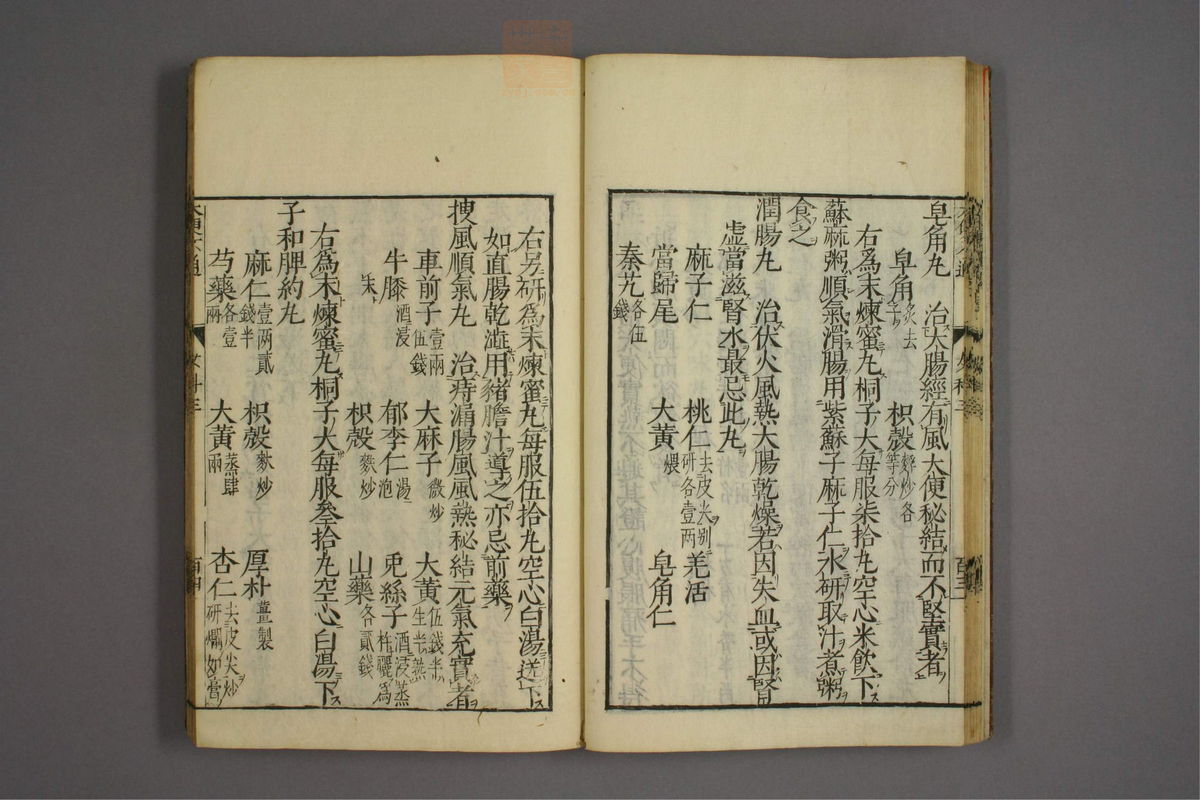 皂角丸 治大腸經有風大便秘結而不堅實者
皂角炙去子 枳殼麩炒各等分
右爲末煉蜜丸桐子大每服柒拾丸空心米飲下
蘇麻粥順氣滑腸用紫蘇子麻子仁水研取汁煮粥
食之
潤腸丸 治伏火風熱大腸乾燥若因失血或因腎
虚當滋腎水最忌此丸
麻子仁 桃仁去皮尖别研各壹两 羌活
當歸尾 大黄煨 皂角仁
秦艽各伍錢
右另研爲末煉蜜丸每服伍拾丸空心白湯送下
如直腸乾澁用豬膽汁導之亦忌前藥
搜風順氣丸 治痔漏腸風風熱秘結元氣充實者
車前子壹兩伍錢 大麻子微炒 大黄伍錢半生半蒸
牛膝酒浸 郁李仁湯泡 兎絲子酒浸蒸杵曬爲
末 枳殼麩炒 山藥各貳錢
右爲末煉蜜丸桐子大每服叄拾丸空心白湯下
子和脾約丸
麻仁壹两貳錢半 枳殼麩炒 厚朴薑製
芍藥各壹兩 大黄蒸肆兩 杏仁去皮尖炒研爛如膏